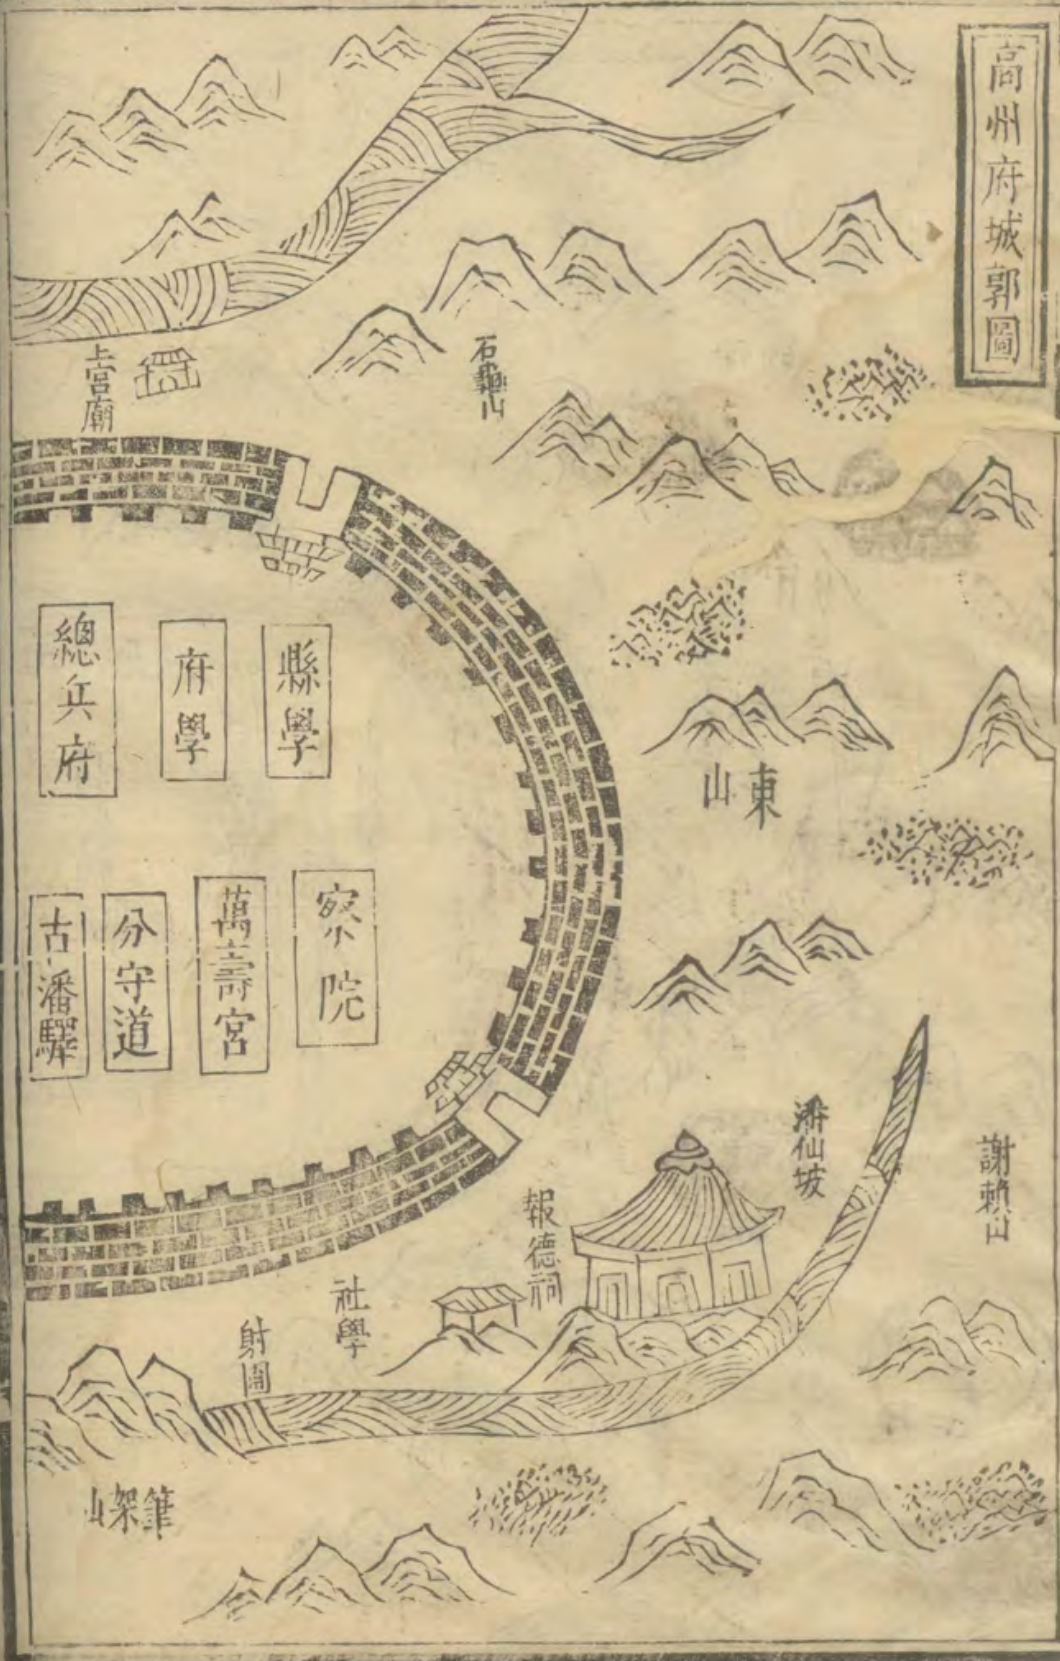 高州府城郭圖
石龜山
上宮廟
縣學
府學
總兵府
東山
察院
萬壽宮
分守道
古潘驛
謝賴山
潘仙坡
報德祠
社學
射圃
筆架山